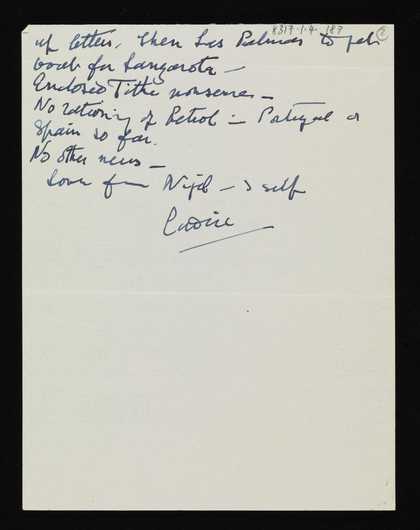 8317.1.4.187 2
up letters, then Las Palmas to get
boat for Lanzarote —
Enclosed Tithe nonsense —
No rationing of Petrol in Portugal or
Spain so far.
No other news —
Love from Nigel — & self